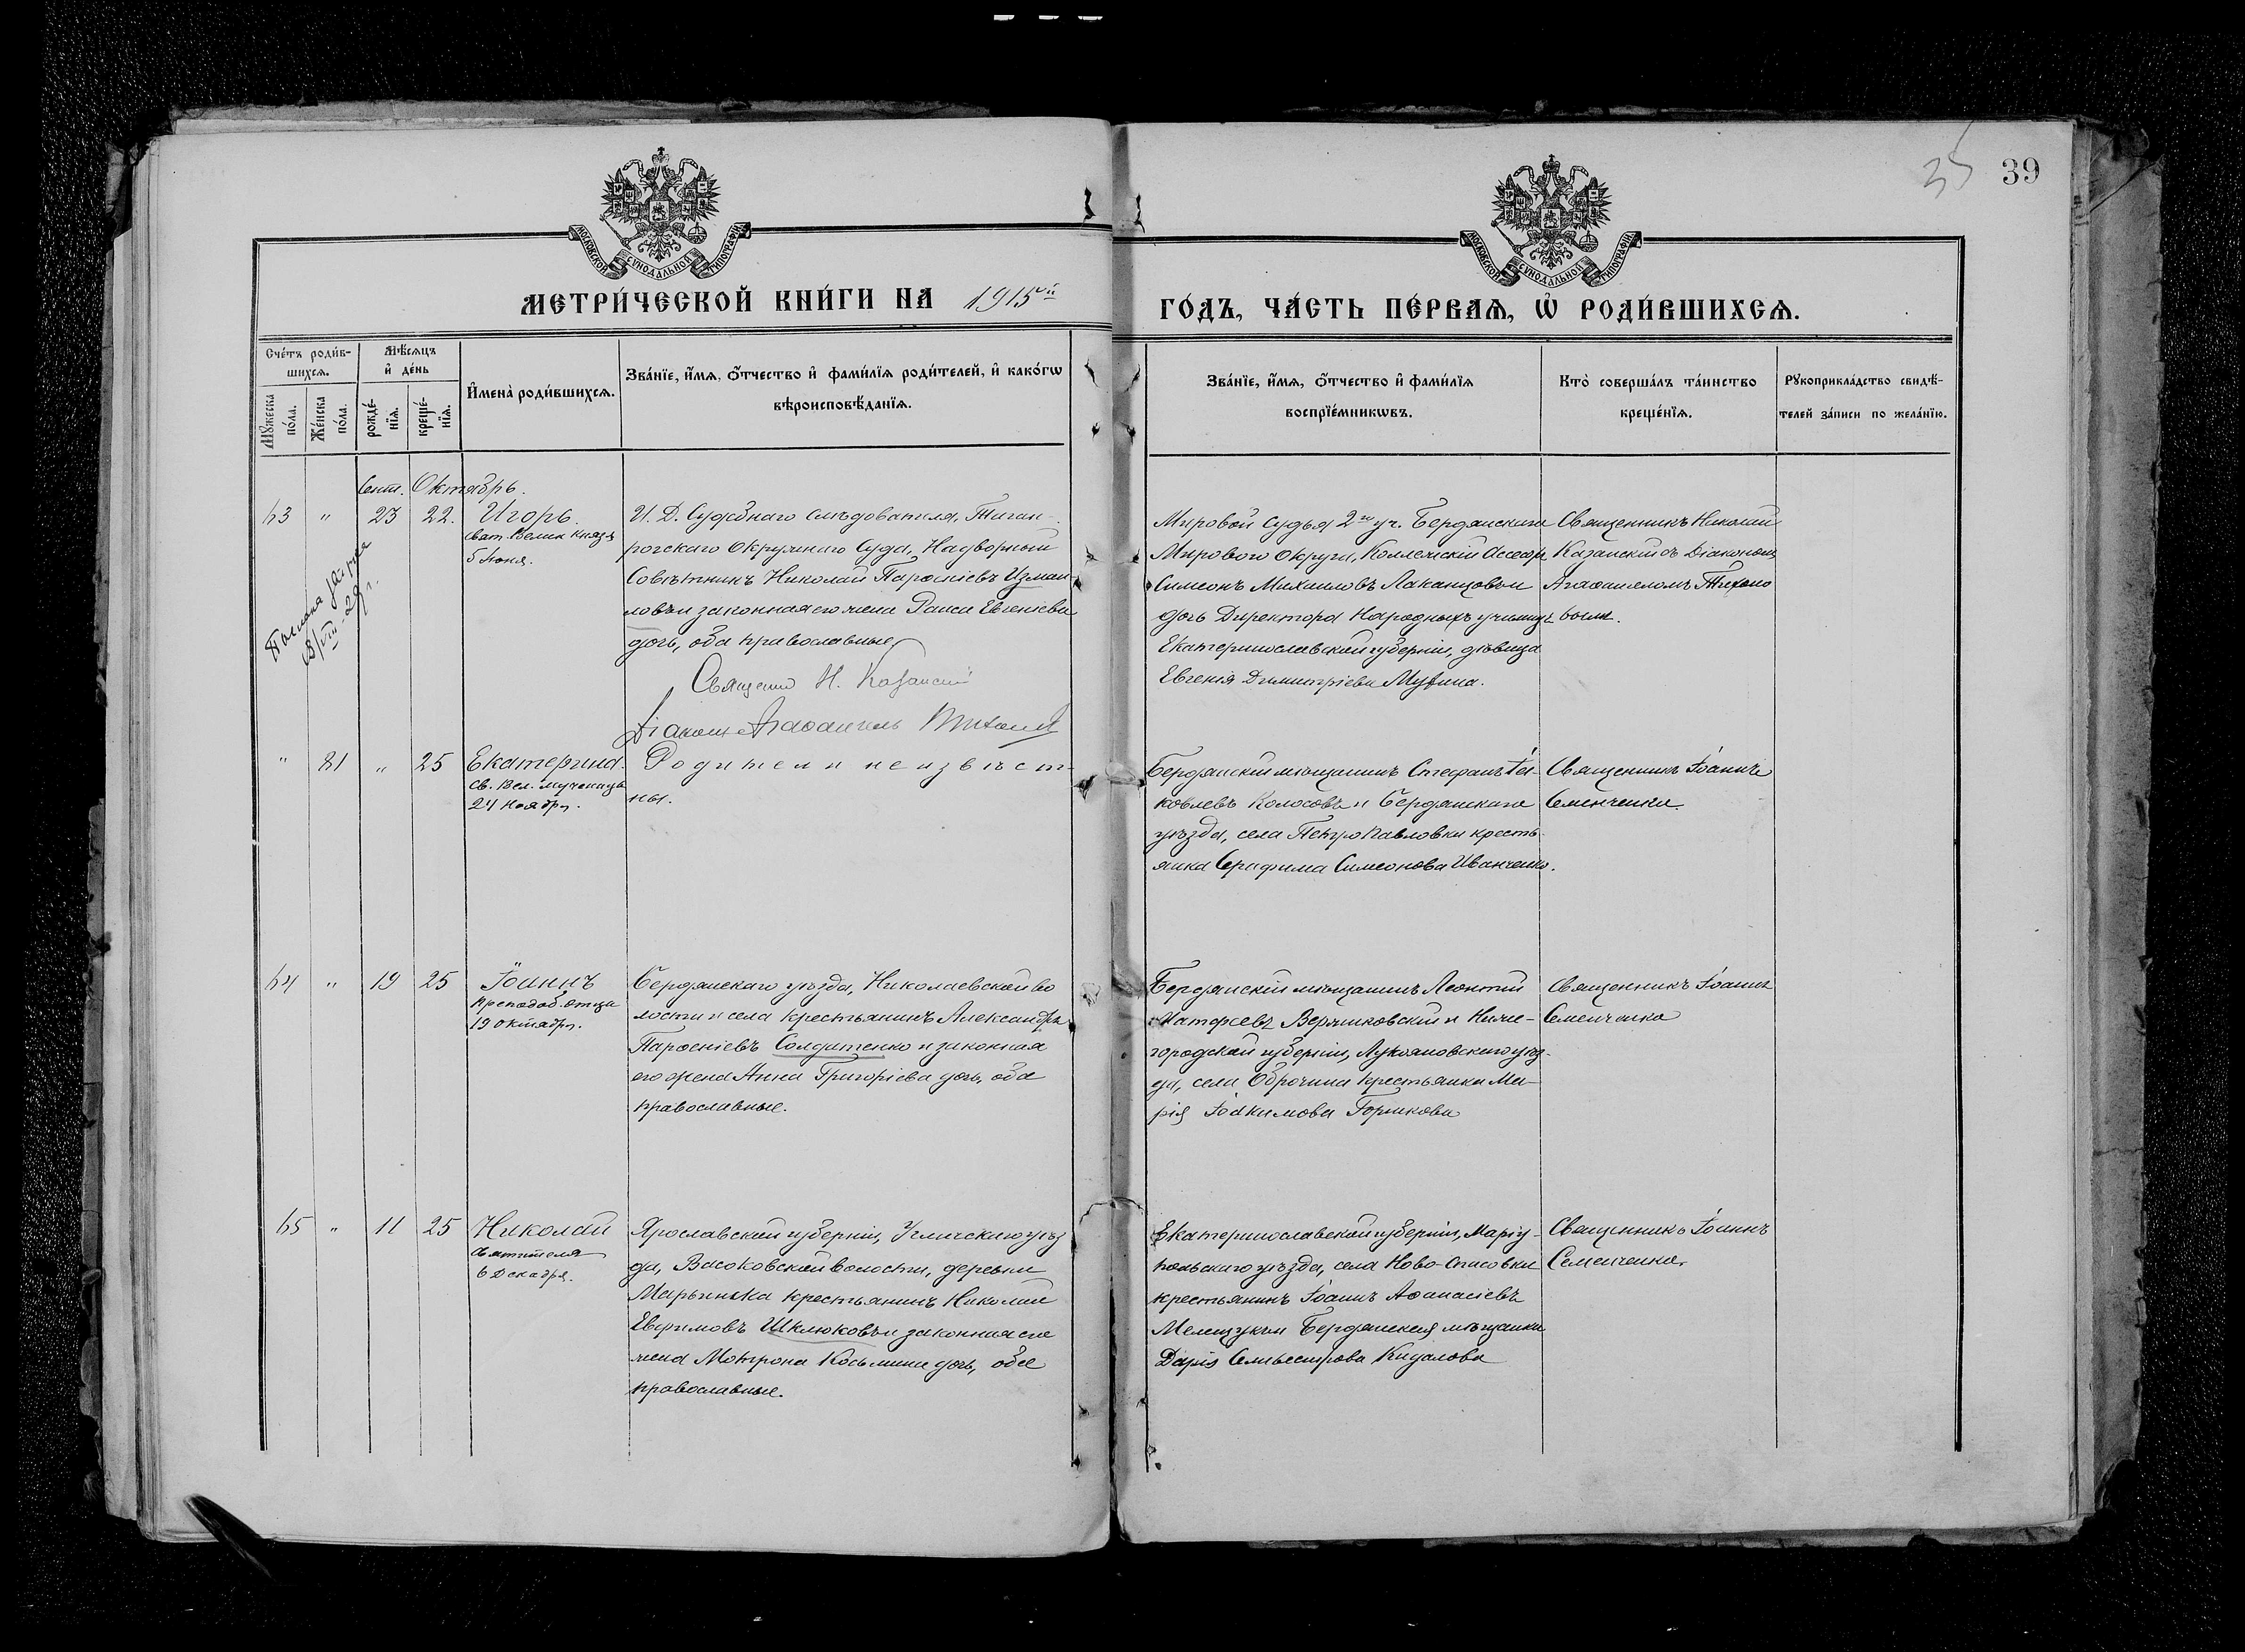 35 39
МОСКОВСКОЙ СѴНОДАЛЬНОЙ ТИПОГРАФІИ
МОСКОВСКОЙ СѴНОДАЛЬНОЙ ТИПОГРАФІИ
МЕТРИ́ЧЕСКОЙ КНИ́ГИ НА 1915й
ГО́ДЪ, ЧА́СТЬ ПЕ́РВАѦ, Ѡ҆ РОДИ́ВШИХСѦ.
Сче́тъ роди́в-
шихсѧ.
Мꙋ́жеска
по́ла.
Же́нска
по́ла.
Мѣ́сѧцъ
и҆ де́нь
рожде́-
нїѧ.
креще́-
нїѧ.
И҆мена̀ роди́вшихсѧ.
Зва́нїе, и҆́мѧ, ѻ҆́тчество и҆ фами́лїѧ роди́телей, и҆ како́гѡ
вѣроисповѣ́данїѧ.
Зва́нїе, и҆́мѧ, ѻ҆́тчество и҆ фами́лїѧ
воспрїе́мникѡвъ.
Кто̀ соверша́лъ та́инство
креще́нїѧ.
Рꙋкоприкла́дство свидѣ́-
телей за́писи по жела́нїю.
Сент. Октябрь.
63 " 23 22.
Игорь.
Велик князя
5 Іюня.
И. Д. Судебнаго Слѣдователя, Таган-
рогскаго Окружнаго Суда, Надворный
Совѣтникъ Николай Парѳеніевъ Измаи-
ловъ и законная его жена Раиса Евгеніева
дочь, оба православные.
Священ Н. Казанскій
Діаконъ Агаѳангелъ Тихоно
Мировой Судья 2го уч. Бердянскаго
Мирового Округа, Коллежскій Ассесоръ
Симеонъ Михаиловъ Лаканцовъ и
дочь Директора Народныхъ училищъ
Екатеринославской губерніи, дѣвица
Евгенія Димитріева Музина.
Священникъ Николай
Казанскій съ Діакономъ
Агаѳангеломъ Тихоно
вымъ.
" 81 „ 25
Екатерина.
Св. Вел. мученицы
24 Ноября.
Родители неизвѣст-
ны.
Бердянскій мѣщанинъ Стефанъ Іа-
ковлевъ Колосовъ и Бердянскаго
уѣзда, села Петропавловки кресть-
янка Серафима Симеонова Иванченко.
Священникъ Іоаннъ
Семенченко.
64 " 19 25
Іоаннъ
Преподоб. отца
19 октября.
Бердянскаго уѣзда, Николаевской во
лости и села крестьянинъ Александръ
Парѳеніевъ Солдатенко и законная
его жена Анна Григоріева дочь, оба
православные.
Бердянскій мѣщанинъ Леонтій
Матфеевъ Вержиковскій и Ниже-
городской губерніи, Лукояновскаго уѣз-
да, села Оброчина крестьянка Ма-
рія Іоакимова Горшкова
Священникъ Іоаннъ
Семенченко
65 " 11 25
Николай
Святителя
6 Декабря.
Ярославской губерніи, Угличскаго уѣз
да, Васоковской волости, деревни
Марьинска крестьянинъ Николай
Евфимовъ Шклюковъ и законная его
жена Мотрона Косьмина дочь, оба
православные.
Екатеринославской губерніи, Маріу-
польскаго уѣзда, села Ново-Спасовки
крестьянинъ Іоаннъ Аѳанасіевъ
Мелещукъ и Бердянская мѣщанка
Дарія Сильвестрова Кидалова
Священникъ Іоаннъ
Семенченко.